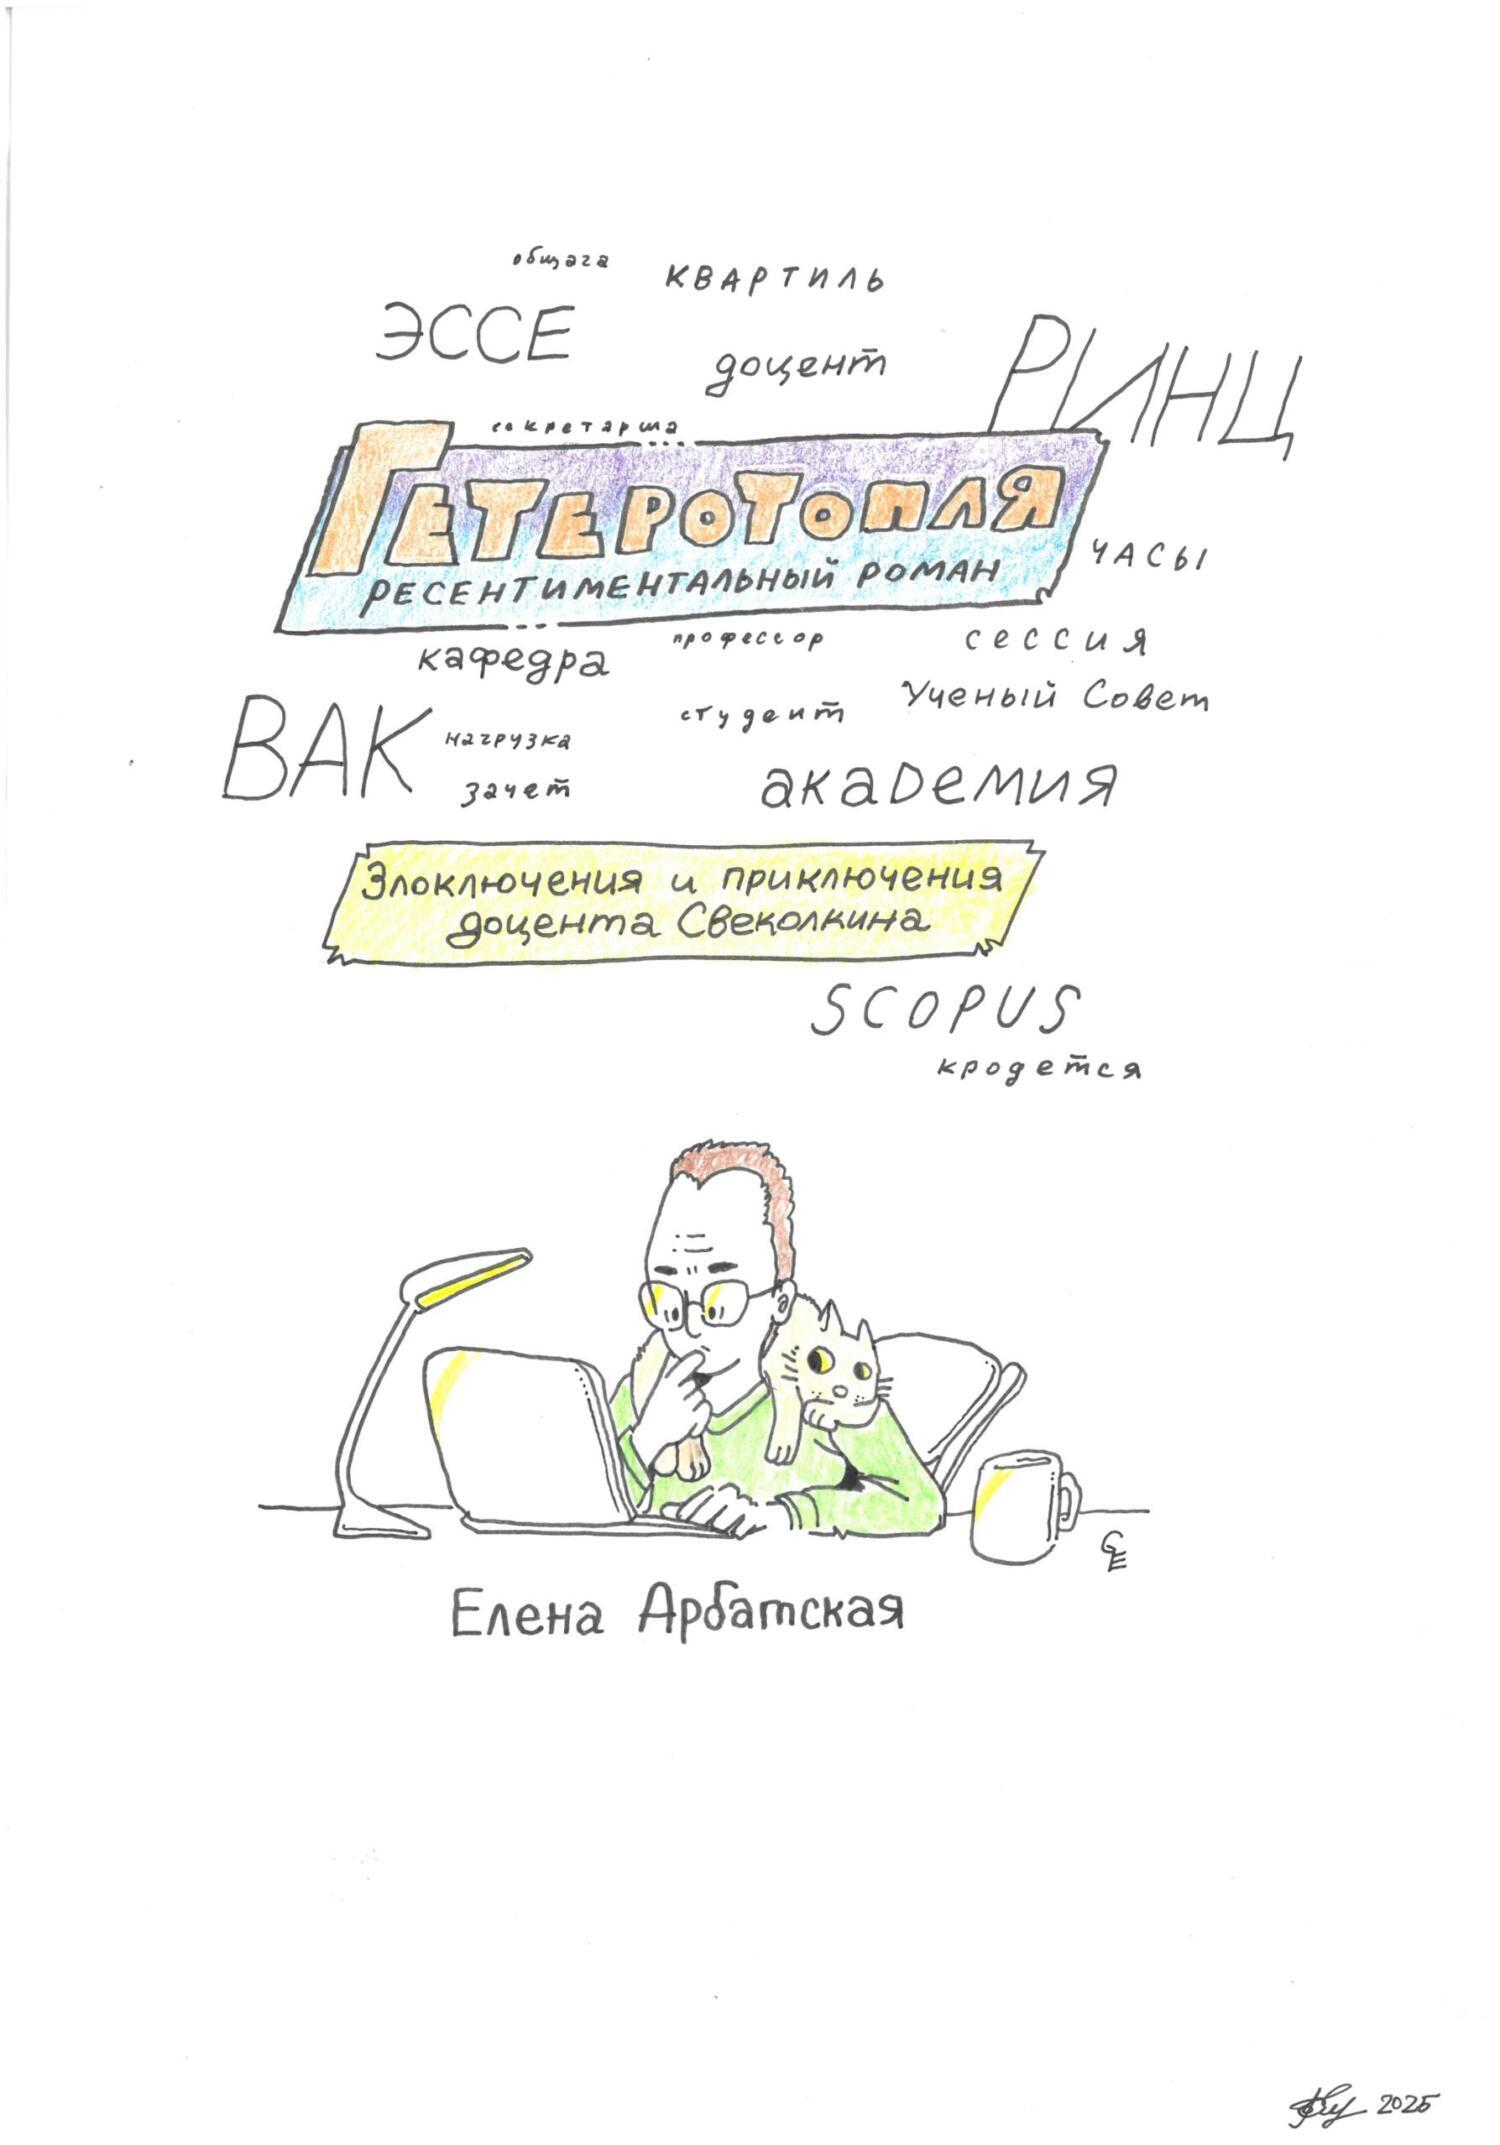 общага
КВАРТИЛЬ
ЭССЕ
доцент
РИНЦ
секретарша
ГЕТЕРОТОПЛЯ
РЕСЕНТИМЕНТАЛЬНЫЙ РОМАН
ЧАСЫ
кафедра
профессор
сессия
Ученый Совет
ВАК
нагрузка
студент
зачет
академия
Злоключения и приключения
доцента Свеколкина
SCOPUS
кродется
GE
Елена Арбатская
2025